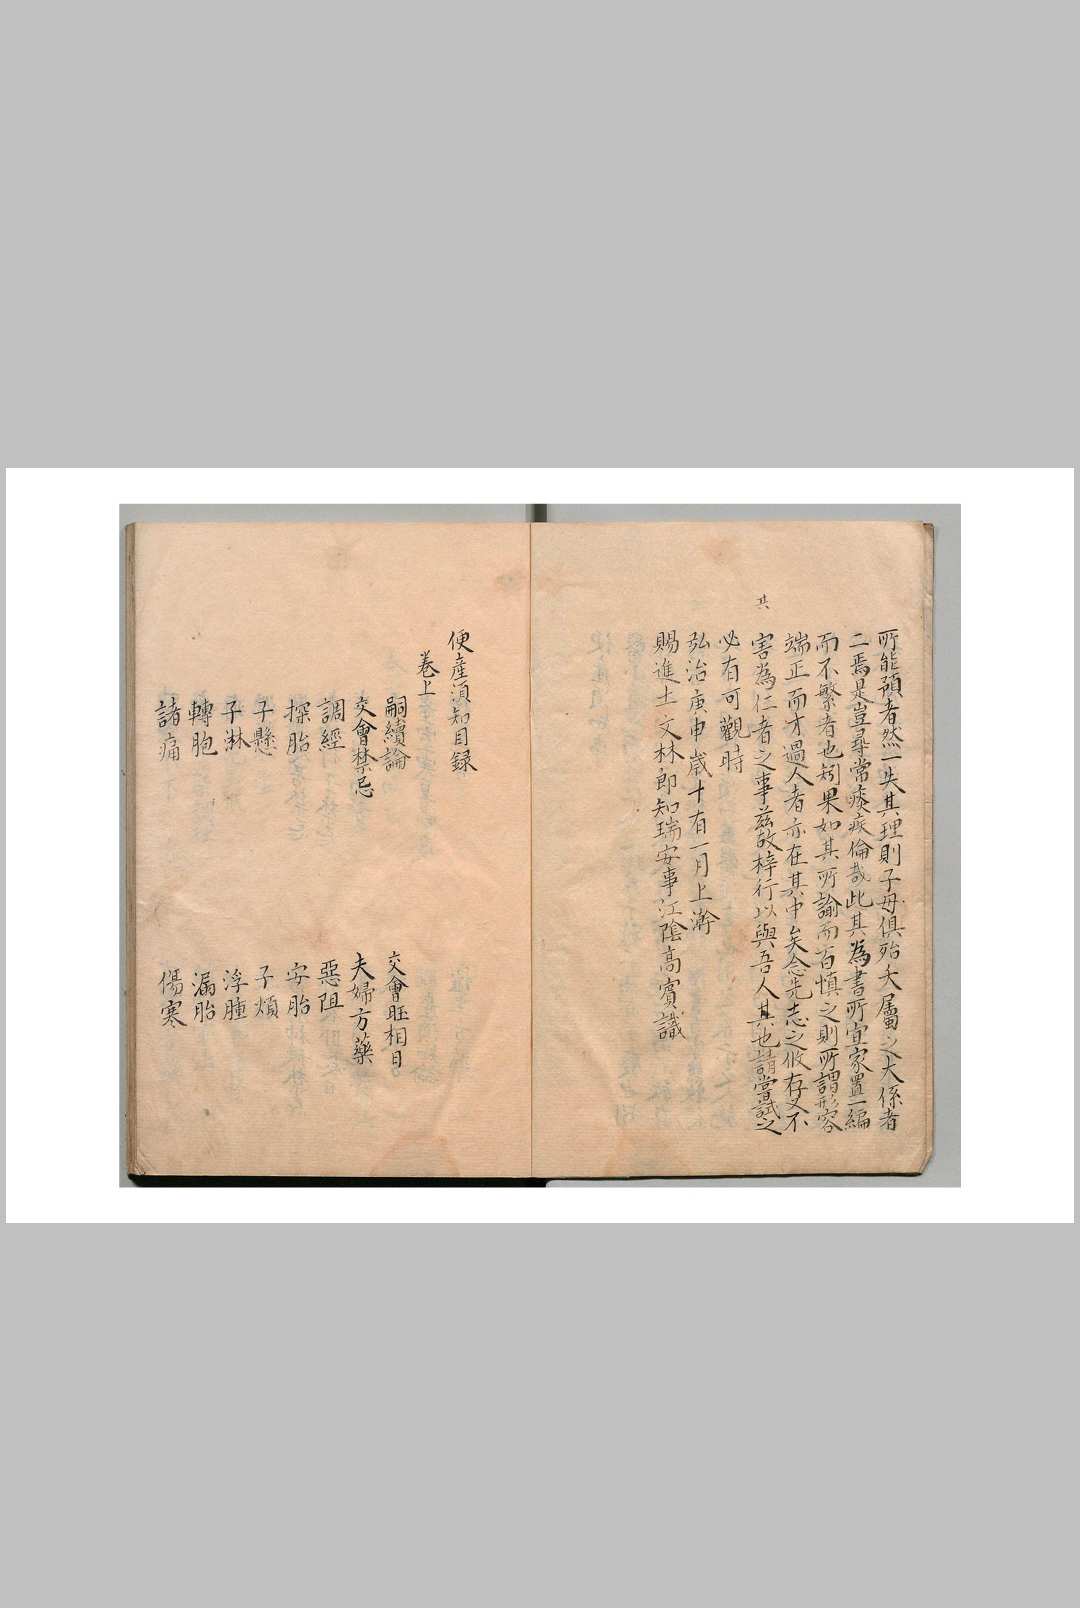 所能預者然一失其理則子母俱殆夭屬之大係者
二焉是豈尋常痰疾倫哉此其為書所宜家置一編
而不繁者也矧果如其所諭而百慎之則所謂形容
端正而才過人者亦在其中矣念先志之攸存又不
害為仁者之事茲故梓行以與吾人其也請嘗試之
共
必有可觀時
弘治庚申歳十有一月上澣
賜進士文林郎知瑞安事江陰高賓識
便産須知目録
巻上
嗣續論 交會旺相日
交會禁忌 夫婦方藥
調經 惡阻
探胎 安胎
子懸 子煩
子淋 浮腫
轉胞 漏胎
諸痛 傷寒